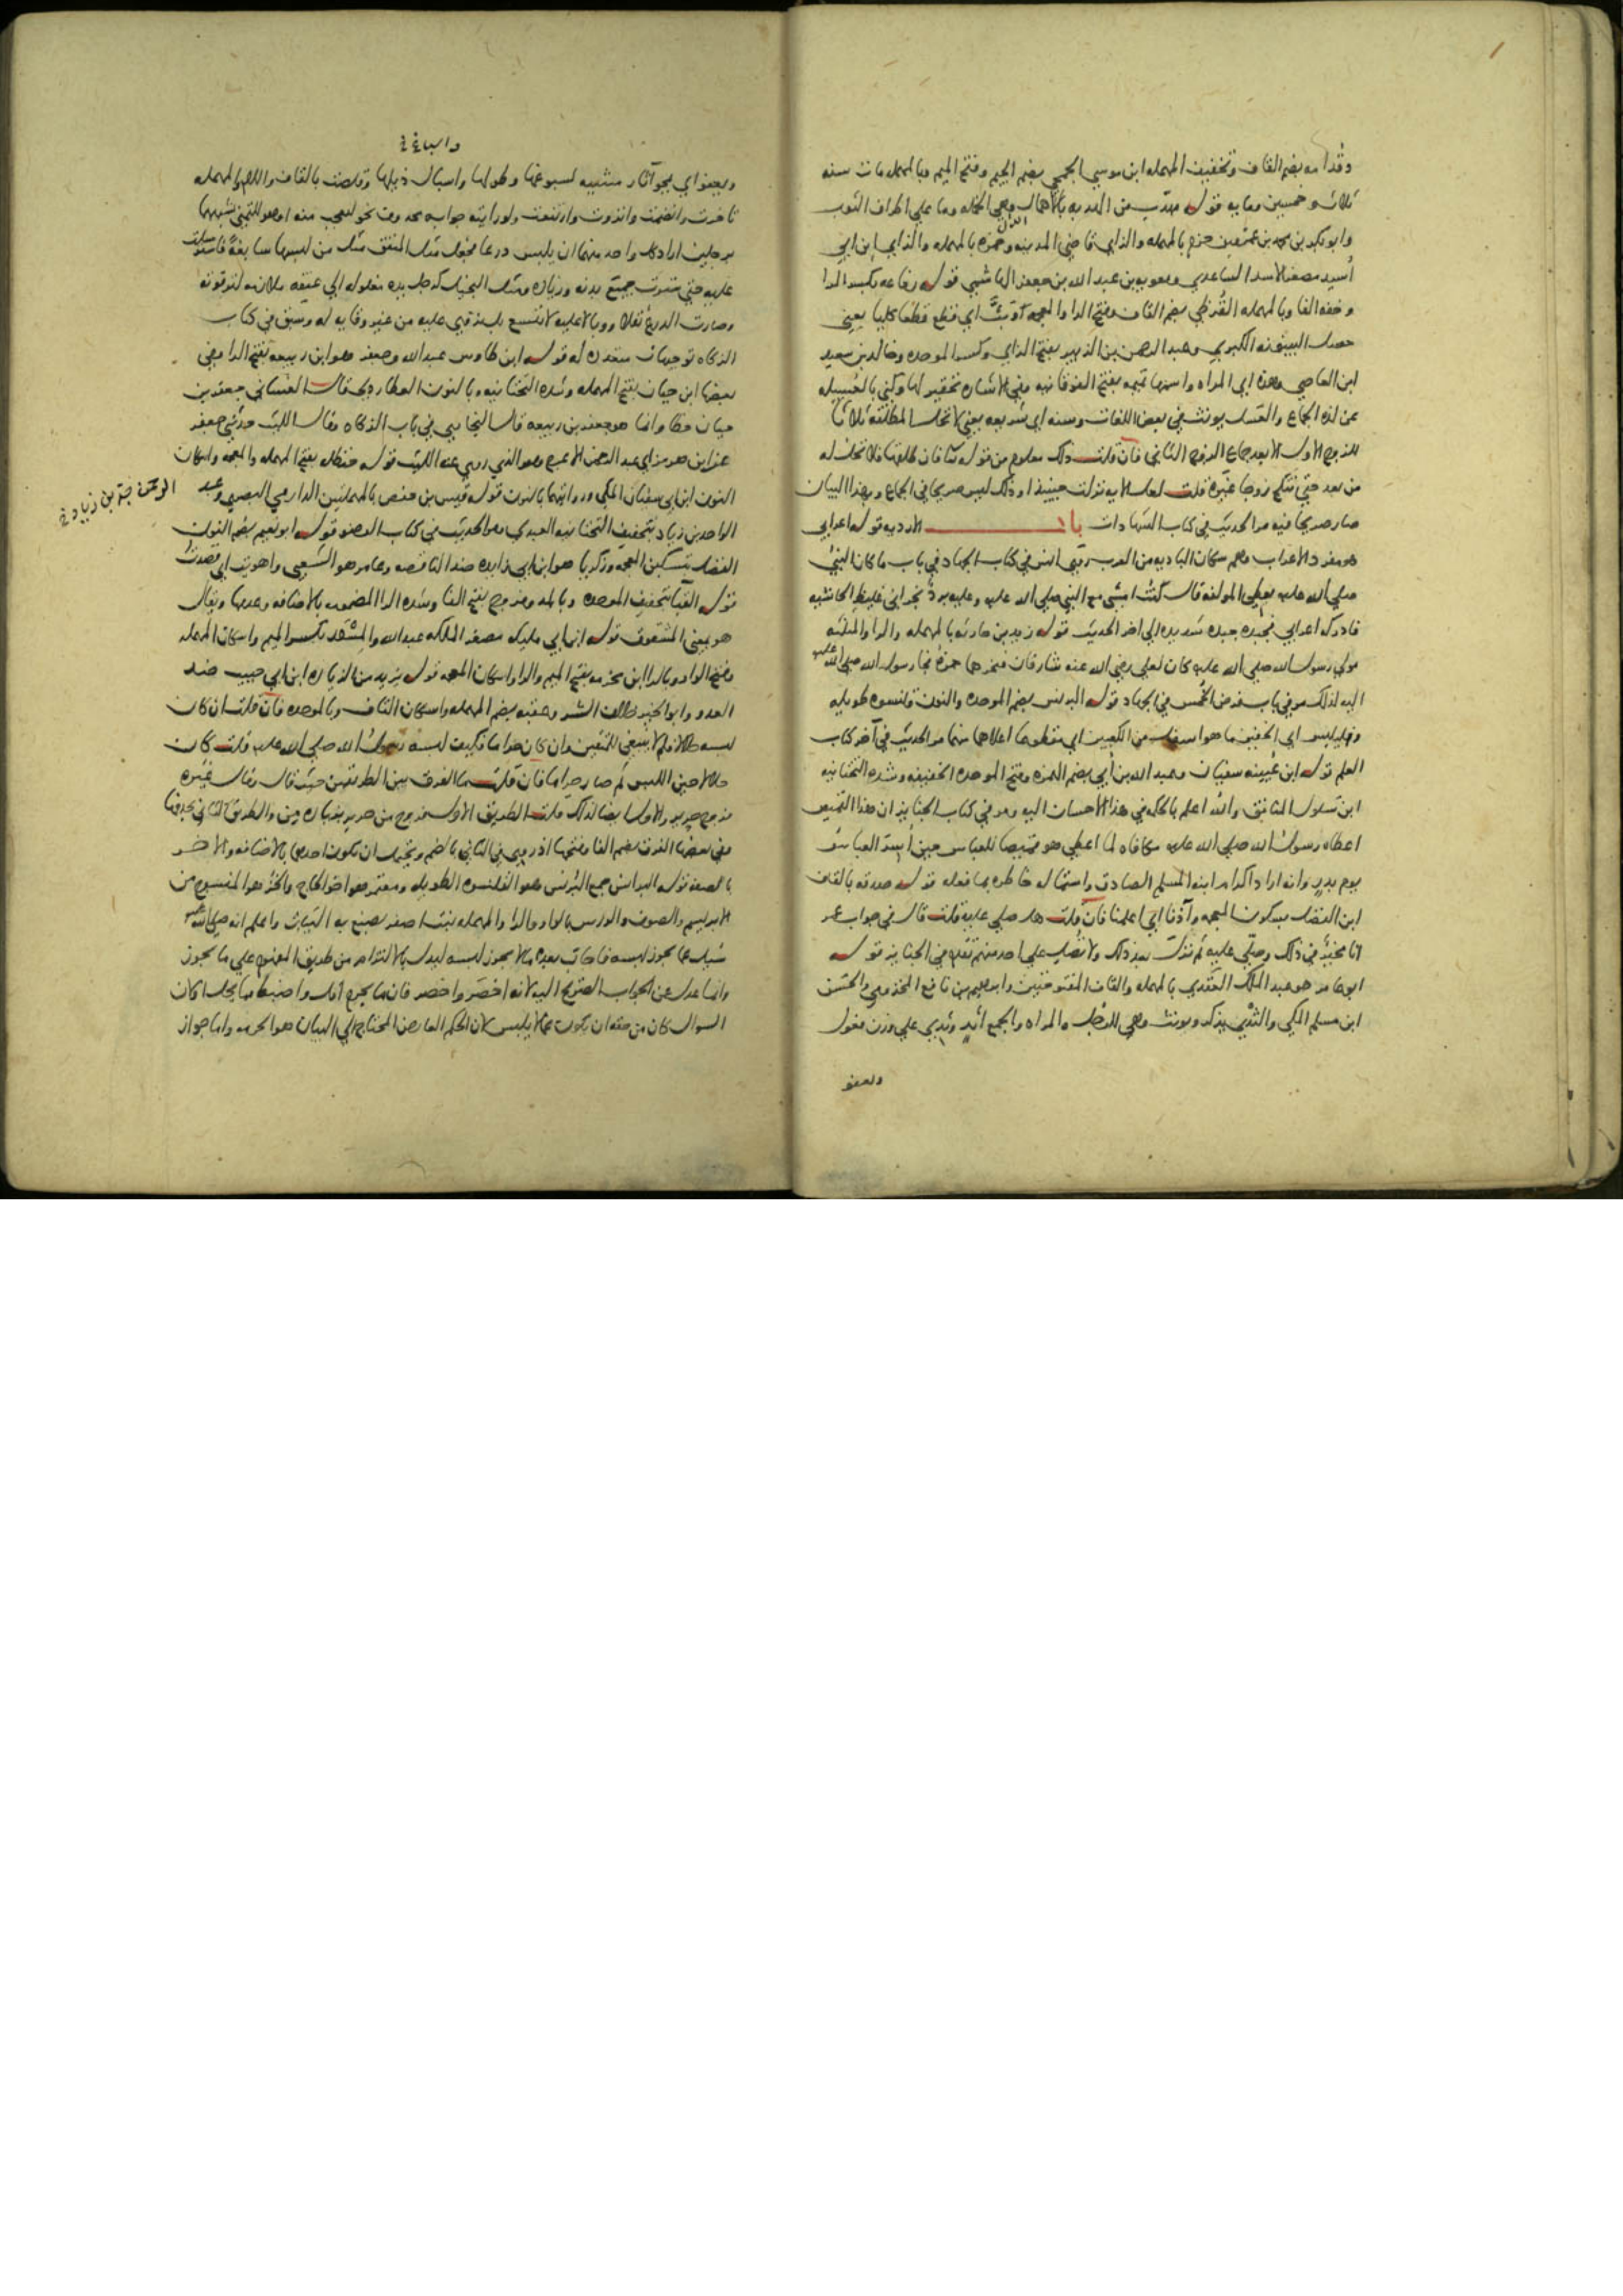 وقدامه بضم القاف وتخفيف المهمله ابن موسي الجمحي بضم الجيم وفتح الميم وبالمهمله مات سنه
ثلاث وخمسين ومايه قوله مهدب من الهدبه بالاهمال وهي الخمله وما علي اطراف الثوب
وابو بكر بن محمد بن عمرو بن حزم بالمهمله والزاي قاضي المدينه وحمزه بالمهمله والزاي ابن ابي
أسيد مصغر الاسد الساعدي ومعويه بن عبد الله بن جعفر الهاشمي قوله رفاعه بكسر الرا
وخفه الفا وبالمهمله القرظي بضم القاف وفتح الرا والمعجمه وبت اي قطع قطعا كليا يعني
حصل البينونه الكبري وعبد الرحمن بن الزبير بفتح الزاي وكسر الموحده وخالد بن سعيد
ابن العاصي وهذه اي المراه واسمها تميمه بفتح الفوقانيه وفي الاشاره تحقير لها وكني بالعسيله
عن لذه الجماع والعسل يونث في بعض اللغات وسنه اي شريعه يعني لا تحل المطلقه ثلاثا
للزوج الاول الا بعد جماع الزوج الثاني فان قلت ذلك معلوم من قوله تعالي فان طلقها فلا تحل له
من بعد حتي تنكح زوجا غيره قلت لعل الايه نزلت حينيذ او ذلك ليس صريحا في الجماع وبهذا البيان
صار صريحا فيه مر الحديث في كتاب الشهادات باب الارديه قوله اعرابي
هو مفرد الاعراب وهم سكان الباديه من العرب روي انس في كتاب الجهاد في باب ما كان النبي
صلي الله عليه يعطي المولفه قال كنت امشي مع النبي صلي الله عليه وعليه برد نجراني غليظ الحاشيه
فادركه اعرابي فجبذه جبذه شديده الي اخر الحديث قوله زيد بن حارثه بالمهمله والرا والمثلثه
مولي رسول الله صلي الله عليه كان لعلي رضي الله عنه شارفان فنحرهما حمزه فجا رسول الله صلي الله عليه
اليه لذلك مر في باب فرض الخمس في الجهاد قوله البرنس بضم الموحده والنون قلنسوه طويله
وفليلبس اي الخفين ما هو اسفل من الكعبين اي مقطوعا اعلاهما منهما مر الحديث في آخر كتاب
العلم قوله ابن عيينه سفيان وعبد الله بن أبي بضم الهمزه وفتح الموحده الخفيفه وشده التحتانيه
ابن سلول المنافق والله اعلم بالحكمه في هذا الاحسان اليه ومر في كتاب الجنايز ان هذا القميص
اعطاه رسول الله صلي الله عليه مكافاه لما اعطي هو قميصا للعباس حين أسر العباس
يوم بدر وانه اراد اكرام ابنه المسلم الصادق واستماله خاطره بما فعله قوله صدقه بالقاف
ابن الفضل بسكون المعجمه وآذنا اي اعلمنا فان قلت هل صلي عليه قلت قال في جواب عمر
انا مخير في ذلك وصلّي عليه ثم نزلت بعد ذلك ولا تصل علي احد منهم تقدم في الجنايز قوله
ابو عامر هو عبد الملك العقدي بالمهمله والقاف المفتوحتين وابراهيم بن نافع المخزومي والحسن
ابن مسلم المكي والثدي يذكر ويونث وهي للرجل والمراه والجمع أثد وثدي علي وزن فعول
وتعفو
واسباغ
وتعفو اي تمحو آثار مشييه لسبوغها وطولها واسبال ذيلها وقلصت بالقاف واللام والمهمله
تاخرت وانضمت وانزوت وارتفعت ولو رايته جوابه محذوف نحو لتعجب منه او هو للتمني شبههما
برجلين اراد كل واحد منهما ان يلبس درعا فجعل مثل المنفق مثل من لبسها سابغة فاسترسلت
عليه حتي سترت جميع بدنه وزياده ومثل البخيل كرجل يده مغلوله الي عنقه ملازمه لترقوته
وصارت الدرع ثقلا ووبالا عليه لا تتسع بل تنزوي عليه من غير وقايه له وسبق في كتاب
الزكاه توجيهات متعدده له قوله ابن طاوس عبد الله وجعفر هو ابن ربيعه بفتح الرا وفي
بعضها ابن حيان بفتح المهمله وشده التحتانيه وبالنون العطاردي قال الغساني جعفر بن
حيان خطا وانما هو جعفر بن ربيعه قال البخاري في باب الزكاه وقال الليث حدثني جعفر
عن ابن هرمز اي عبد الرحمن الاعرج وهو الذي روي عنه الليث قوله حنظله بفتح المهمله والمعجمه واسكان
النون ابن ابي سفيان المكي وروايتهما بالنون قوله قيس بن حفص بالمهملتين الدارمي البصري وعبد
الواحد بن زياد بتخفيف التحتانيه العبدي ومر الحديث في كتاب الوضو قوله ابو نعيم بضم النون
الفضل بتسكين المعجمه وزكريا هو ابن ابي زايده ضد الناقصه وعامر هو الشعبي واهويت اي قصدت
قوله القبا بتخفيف الموحده وبالمد وفروج بفتح الفا وشده الرا المضمومه بالاضافه وعدمها ويقال
هو بمعني المشقوق قوله ابن ابي مليكه مصغر الملكه عبد الله والمسور بكسر الميم واسكان المهمله
وفتح الواو وبالرا ابن مخرمه بفتح الميم والرا واسكان المعجمه قوله يزيد من الزياده ابن ابي حبيب ضد
العدو وابو الخير خلاف الشر وعقبه بضم المهمله واسكان القاف وبالموحده فان قلت ان كان
لبسه حلالا فلم لا ينبغي للمتقين وان كان حراما فكيف لبسه رسول الله صلي الله عليه قلت كان
حلالا حين اللبس ثم صار حراما فان قلت ما الفرق بين الطريقين حيث قال وقال غيره
فروج حرير والاول ايضا كذلك قلت الطريق الاول فروج من حرير بزياده من والطريق الثاني بحذفها
وفي بعضها الفرق بضم الفا وفتحها اذ روي في الثاني بالضم ويحتمل ان تكون احدهما بالاضافه والاخر
بالصفه قوله البرانس جمع البرنس وهو القلنسوه الطويله ومعتمر هو اخو الحاج والخز هو المنسوج من
الابريسم والصوف والورس بالواو والرا والمهمله نبت اصفر يصبغ به الثياب واعلم انه صلي الله عليه
سُيل عما يجوز لبسه فاجاب بعد ما لا يجوز لبسه ليدل بالالتزام من طريق المفهوم علي ما يجوز
وانما عدل عن الجواب الصريح اليه لانه اخصر واحصر فان ما يحرم اقل واضبط مما يحل او كان
السوال كان من حقه ان يكون عما لا يلبس لان الحكم العارض المحتاج الي البيان هو الحرمه واما جواز